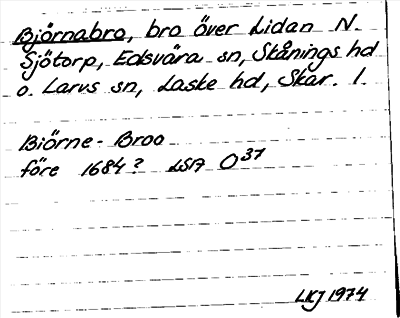 Björnabro, bro över Lidan N.
Sjötorp, Edsvära sn, Skånings hd
o. Larvs sn, Laske hd, Skar. l.
Biörne-Broo
före 1684? LSA O37
LKJ 1974